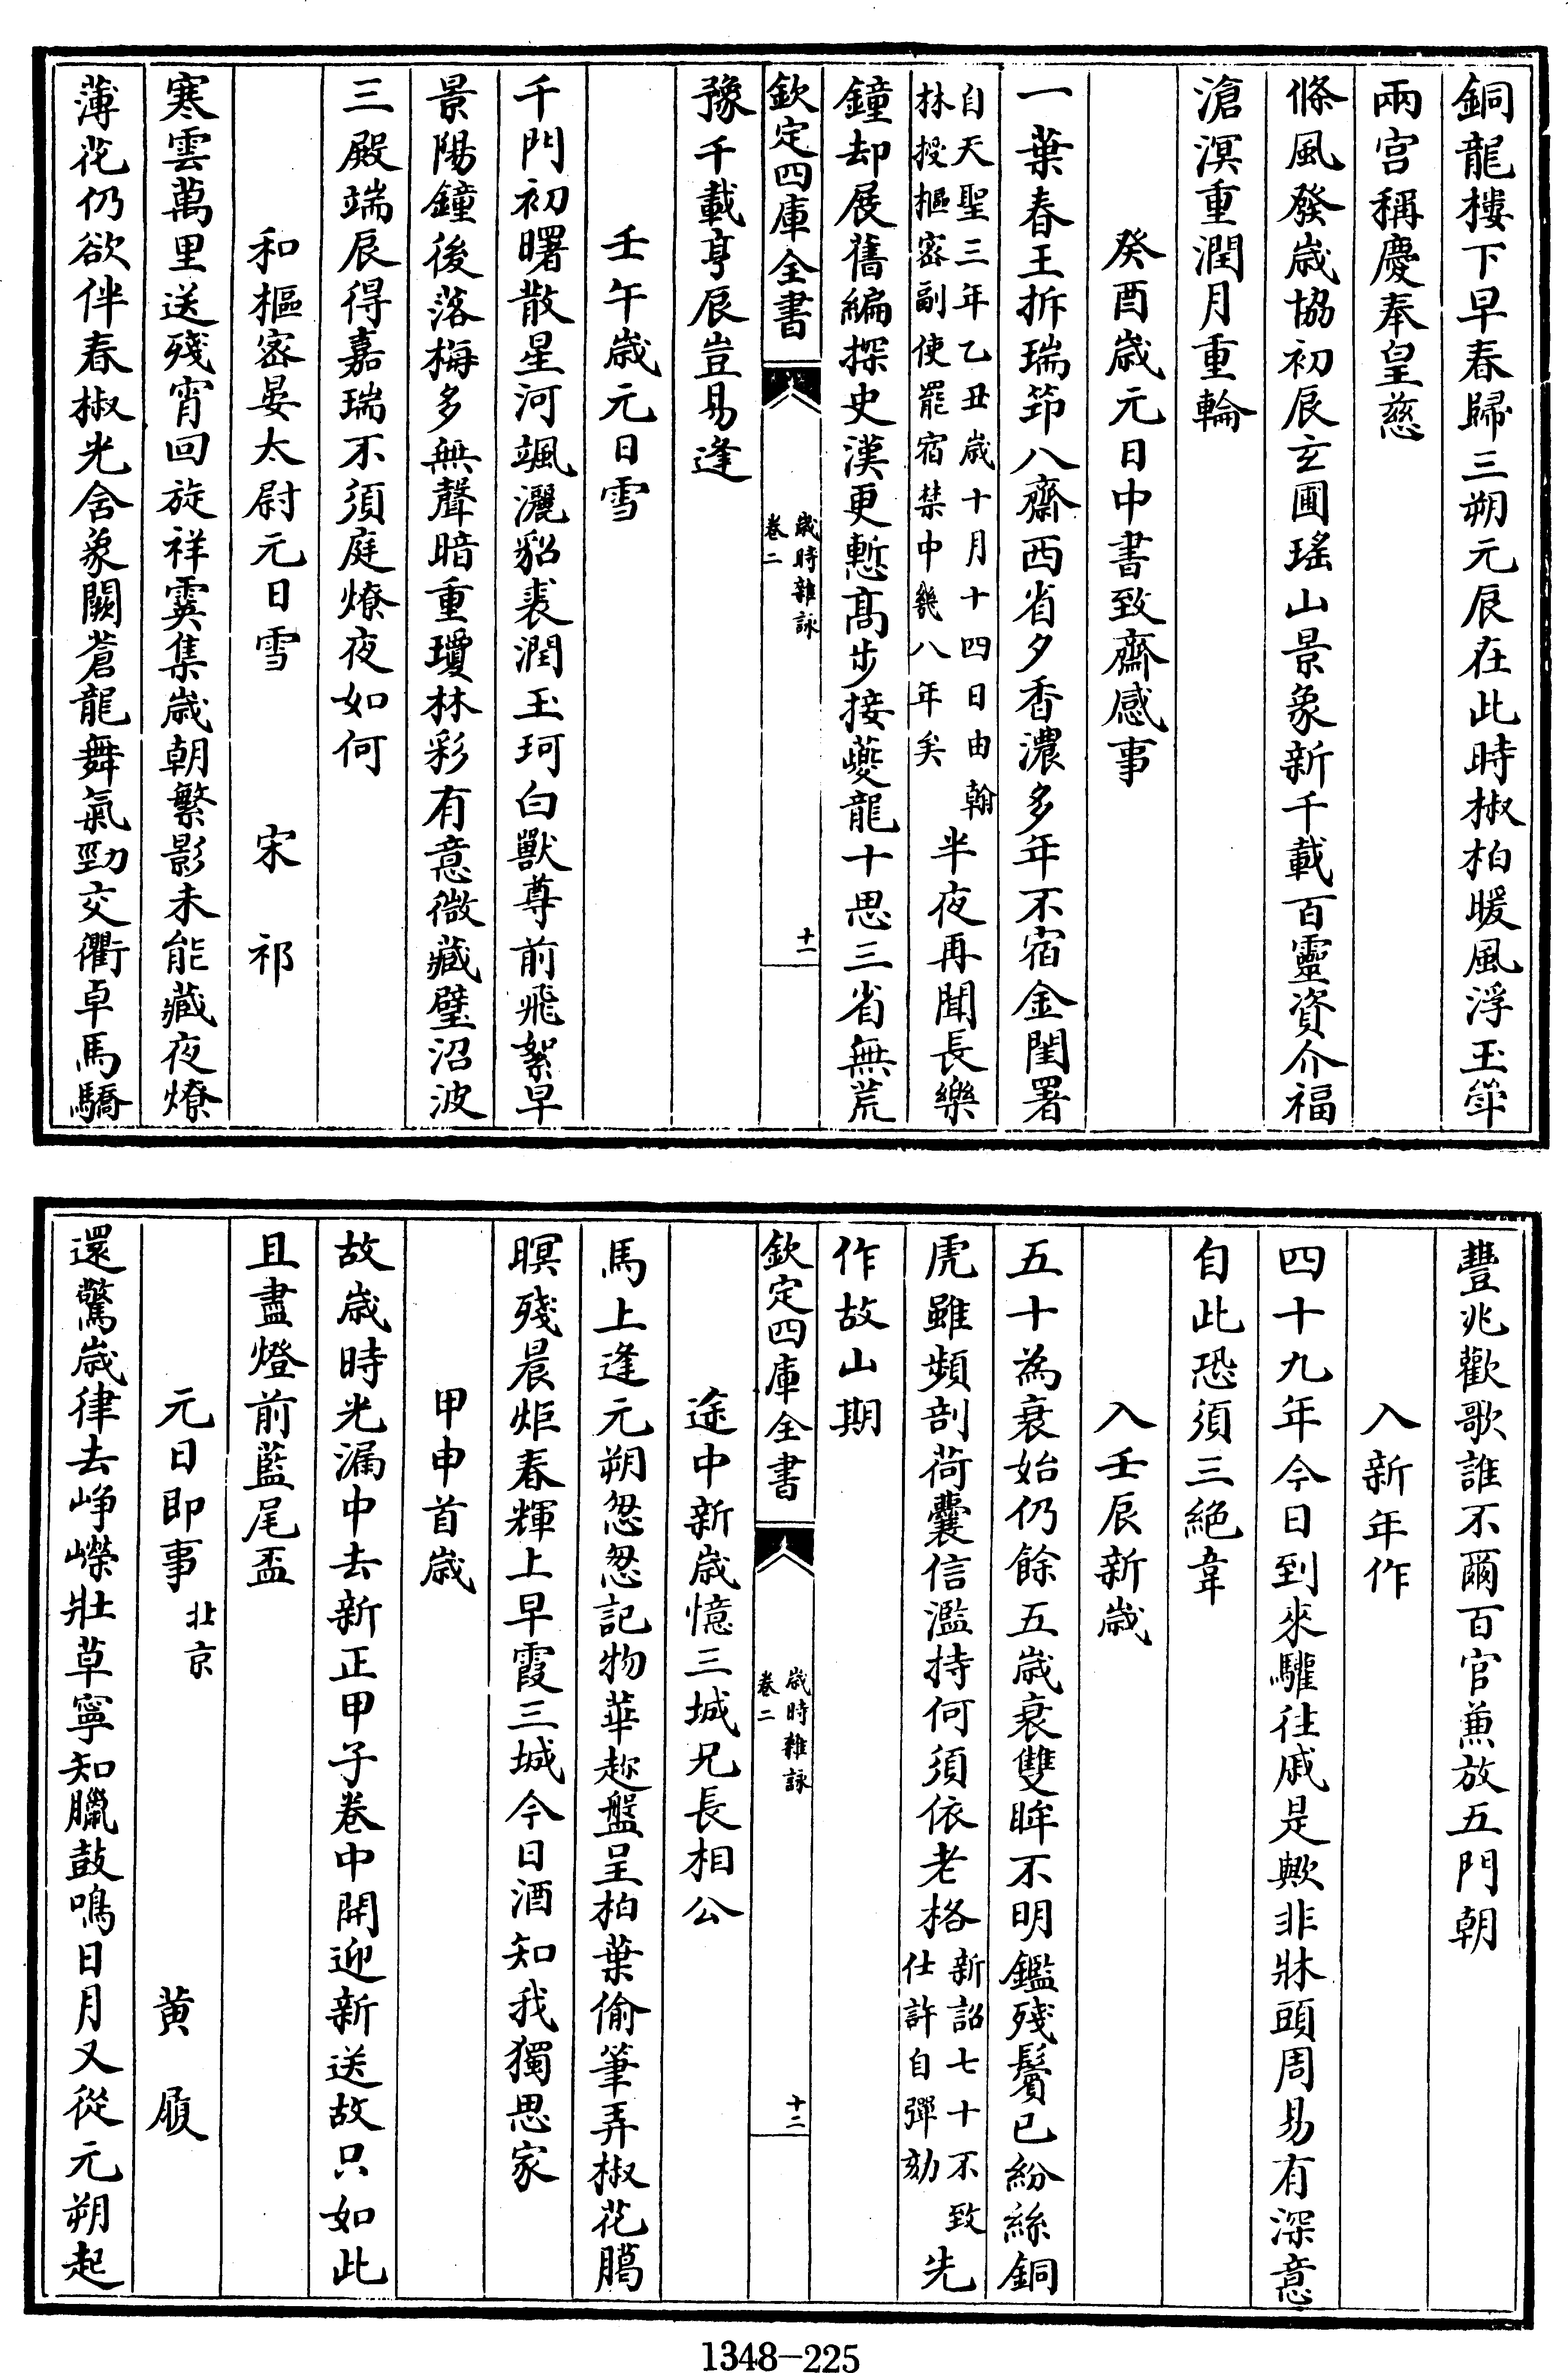 銅龍樓下早春歸三朔元辰在此時椒柏暖風浮玉斝
兩宫稱慶奉皇慈
條風發歳協初辰玄圃瑤山景象新千載百靈資介福
滄溟重潤月重輪
癸酉歳元日中書致齋感事
一葉春王拆瑞莭八齋西省夕香濃多年不宿金閨署
自天聖三年乙丑歳十月十四日由翰
林授樞宻副使罷宿禁中幾八年矣
半夜再聞長樂
鐘却展舊編探史漢更慙髙步接夔龍十思三省無荒
欽定四庫全書
歳時雜詠
卷二
十一
豫千載亨辰豈易逢
壬午歳元日雪
千門初曙散星河颯灑貂裘潤玉珂白獸尊前飛絮早
景陽鐘後落梅多無聲暗重瓊林彩有意微藏璧沼波
三殿端辰得嘉瑞不須庭燎夜如何
和樞宻晏太尉元日雪 宋祁
寒雲萬里送殘宵回旋祥霙集歳朝繁影未能藏夜燎
薄花仍欲伴春椒光含象闕蒼龍舞氣勁交衢卓馬驕
豐兆歡歌誰不爾百官兼放五門朝
入新年作
四十九年今日到來驩往戚是歟非牀頭周易有深意
自此恐須三絶韋
入壬辰新歳
五十為衰始仍餘五歳衰雙眸不明鑑殘鬢已紛絲銅
虎雖頻剖荷囊信濫持何須依老格
新詔七十不致
仕許自彈劾
先
作故山期
欽定四庫全書
歳時雜詠
卷二
十二
途中新歳憶三城兄長相公
馬上逢元朔忽忽記物華趂盤呈柏葉偷筆弄椒花臈
暝殘晨炬春輝上早霞三城今日酒知我獨思家
甲申首歳
故歳時光漏中去新正甲子卷中開迎新送故只如此
且盡燈前藍尾盃
元日即事 北京 黄履
還驚歳律去峥嶸壯草寧知臘鼓鳴日月又從元朔起
1348-225